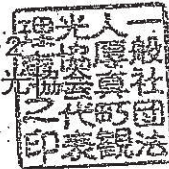 一般社団法
人厚真町観
光協会代表
理事之印
2
光